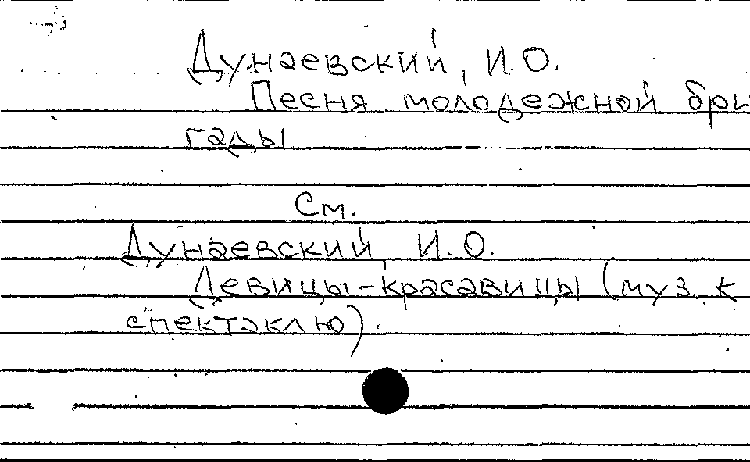 Дунаевский, И.О.
Песня молодежной бри
гады
См.
Дунаевский И.О.
Девицы-красавицы (муз. к
спектаклю).